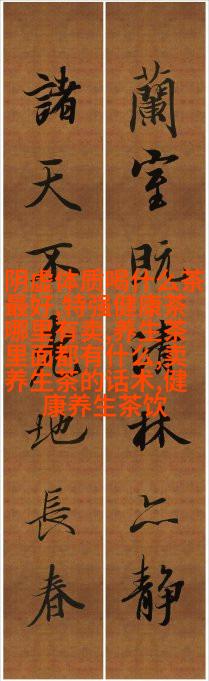 蘭室既林亦靜
諸天不地長春
阴虚体质喝什么茶
最好,特强健康茶
哪里有卖,养生茶
里面都有什么,卖
养生茶的话术,健
康养生茶饮